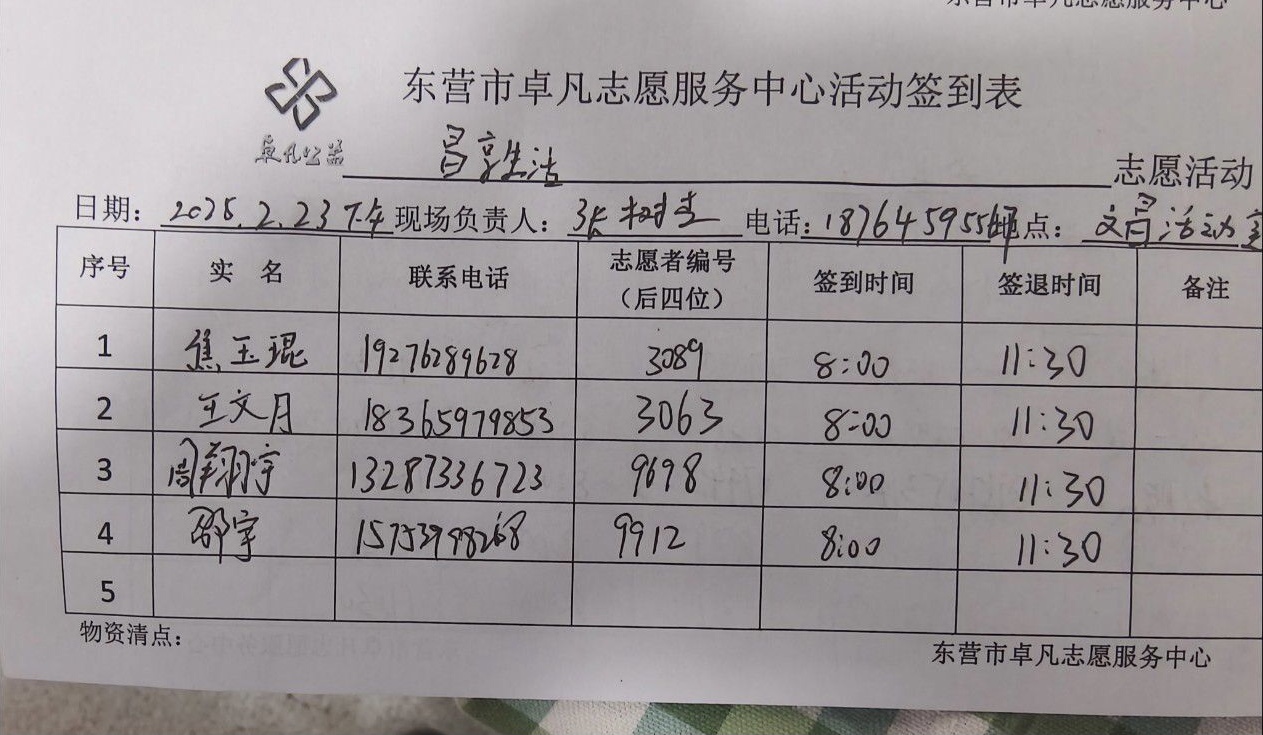 东营市卓凡志愿服务中心
东营市卓凡志愿服务中心活动签到表
卓凡公益
昌享生活 志愿活动
日期: 2025.2.23下午 现场负责人: 张树 电话: 1876459556 地点: 文昌活动室
序号 实 名 联系电话 志愿者编号（后四位） 签到时间 签退时间 备注
1 焦玉琨 19276289628 3089 8:00 11:30
2 王文月 18365979853 3063 8:00 11:30
3 周翔宇 13287336723 9698 8:00 11:30
4 邵宇 15753998268 9912 8:00 11:30
5
物资清点:
东营市卓凡志愿服务中心